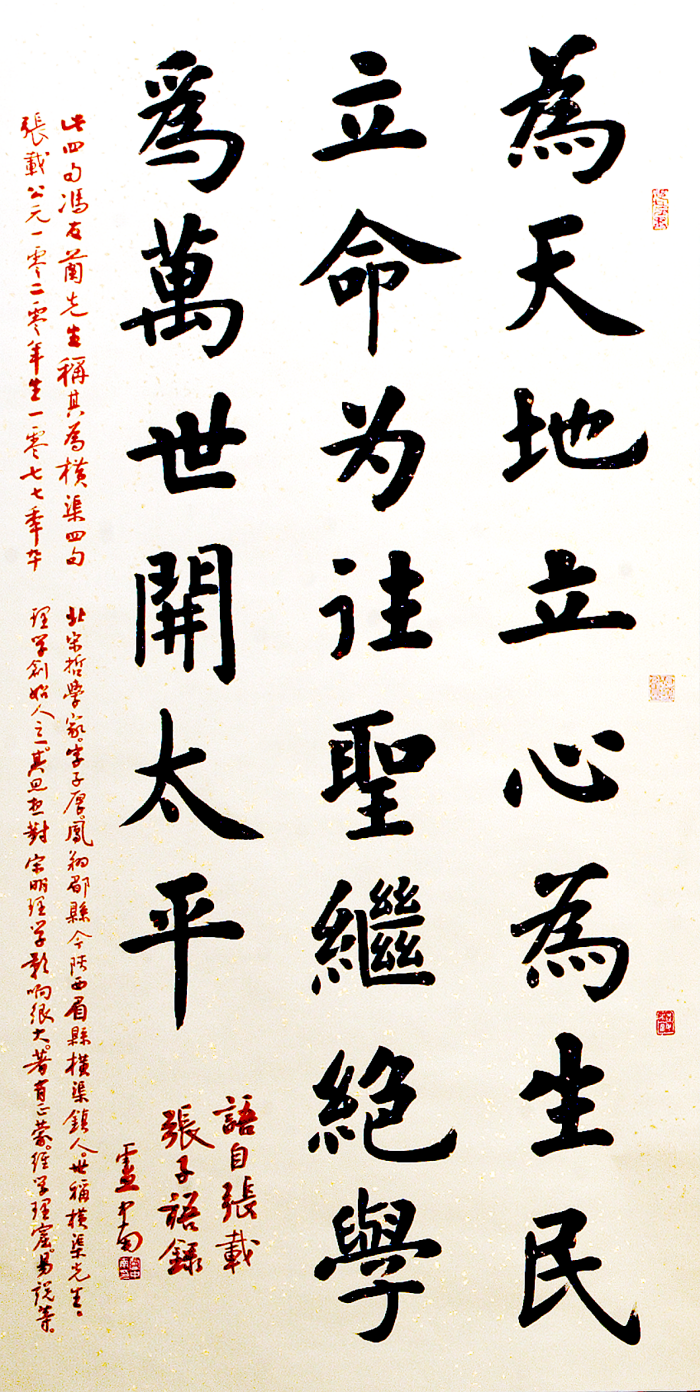 為天地立心為生民
立命为往聖繼絕學
爲萬世開太平
語自張載
張子語錄
盧中南
此四句馮友蘭先生稱其為橫渠四句
張載公元一零二零年生一零七七年卒
北宋哲學家。字子厚。鳳翔郿縣今陝西眉縣橫渠鎮人。世稱橫渠先生。
理学創始人之一。其思想對宋明理学影响很大。著有正蒙。經学理窟。易説等。